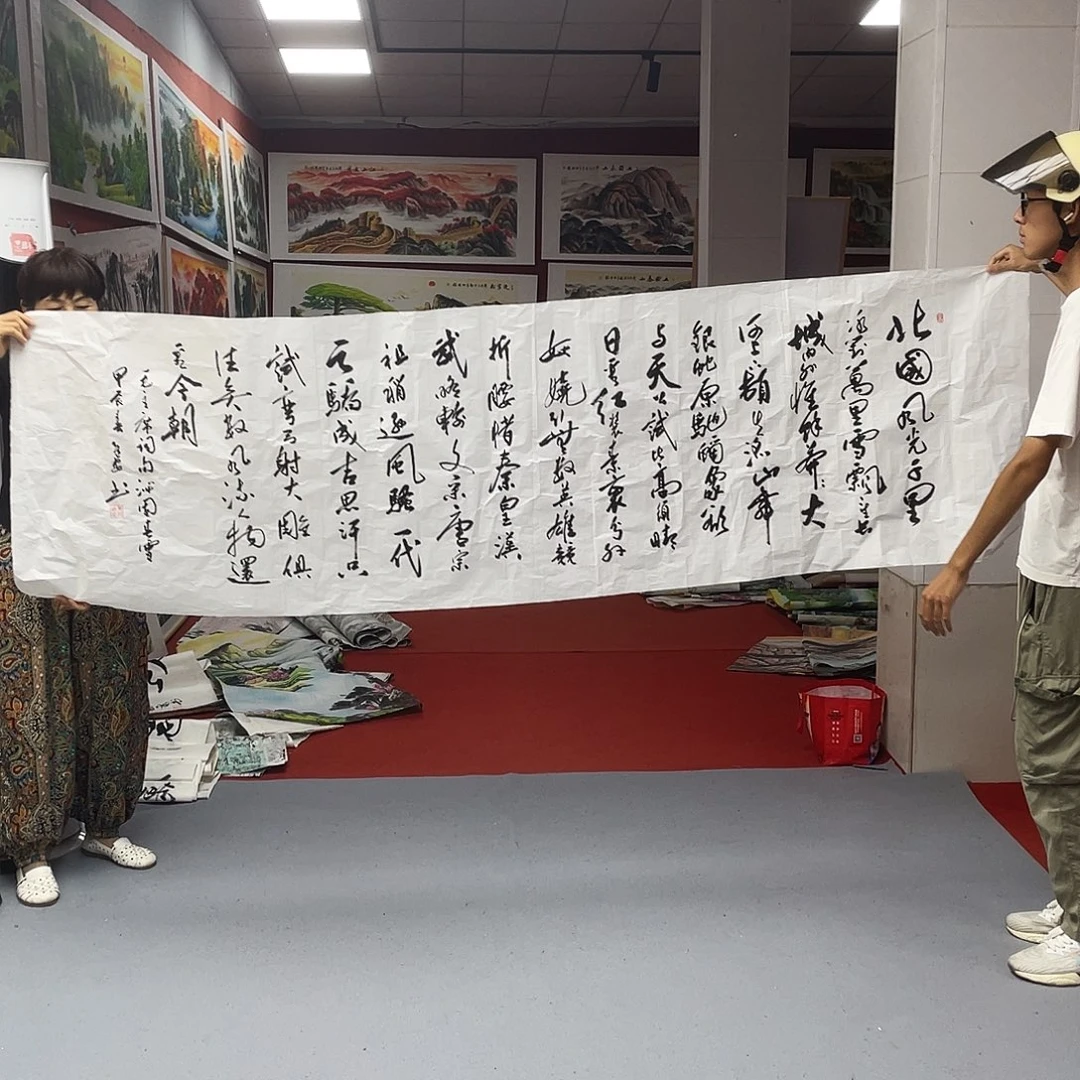 北國风光千里
冰封萬里雪飄望長
城内外惟餘莽莽大
河上下顿失滔滔山舞
銀蛇原馳蠟象欲
与天公試比高須晴
日看红装素裹分外
妖嬈引無数英雄競
折腰惜秦皇漢
武略輸文采唐宗
祖稍遜風騷一代
天驕成吉思汗只
識弯弓射大雕俱
往矣数风流人物還
看今朝
毛主席词句沁園春雪
甲辰 书